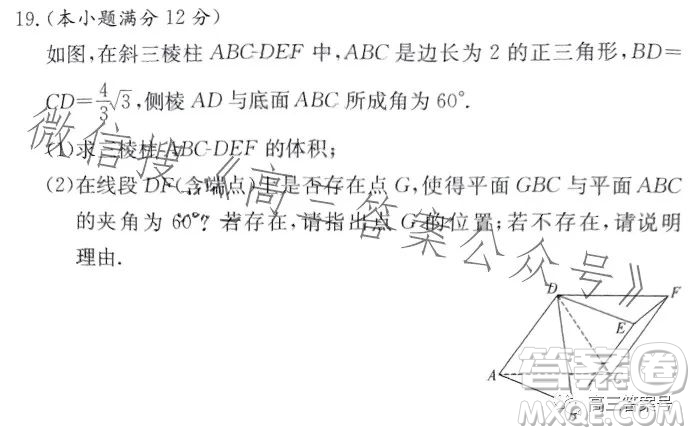 19.(本小题满分12分)
如图,在斜三棱柱 ABC-DEF 中,ABC 是边长为 2 的正三角形,BD=
CD=4/3√3,侧棱 AD 与底面 ABC 所成角为 60°.
(1)求三棱柱 ABC-DEF 的体积;
(2)在线段 DF(含端点)上是否存在点 G,使得平面 GBC 与平面 ABC
的夹角为 60°?若存在,请指出点 G 的位置;若不存在,请说明
理由.
微信搜《高三答案公众号》
D
F
E
A
B
答案圈
MXQE.COM
高三答案号